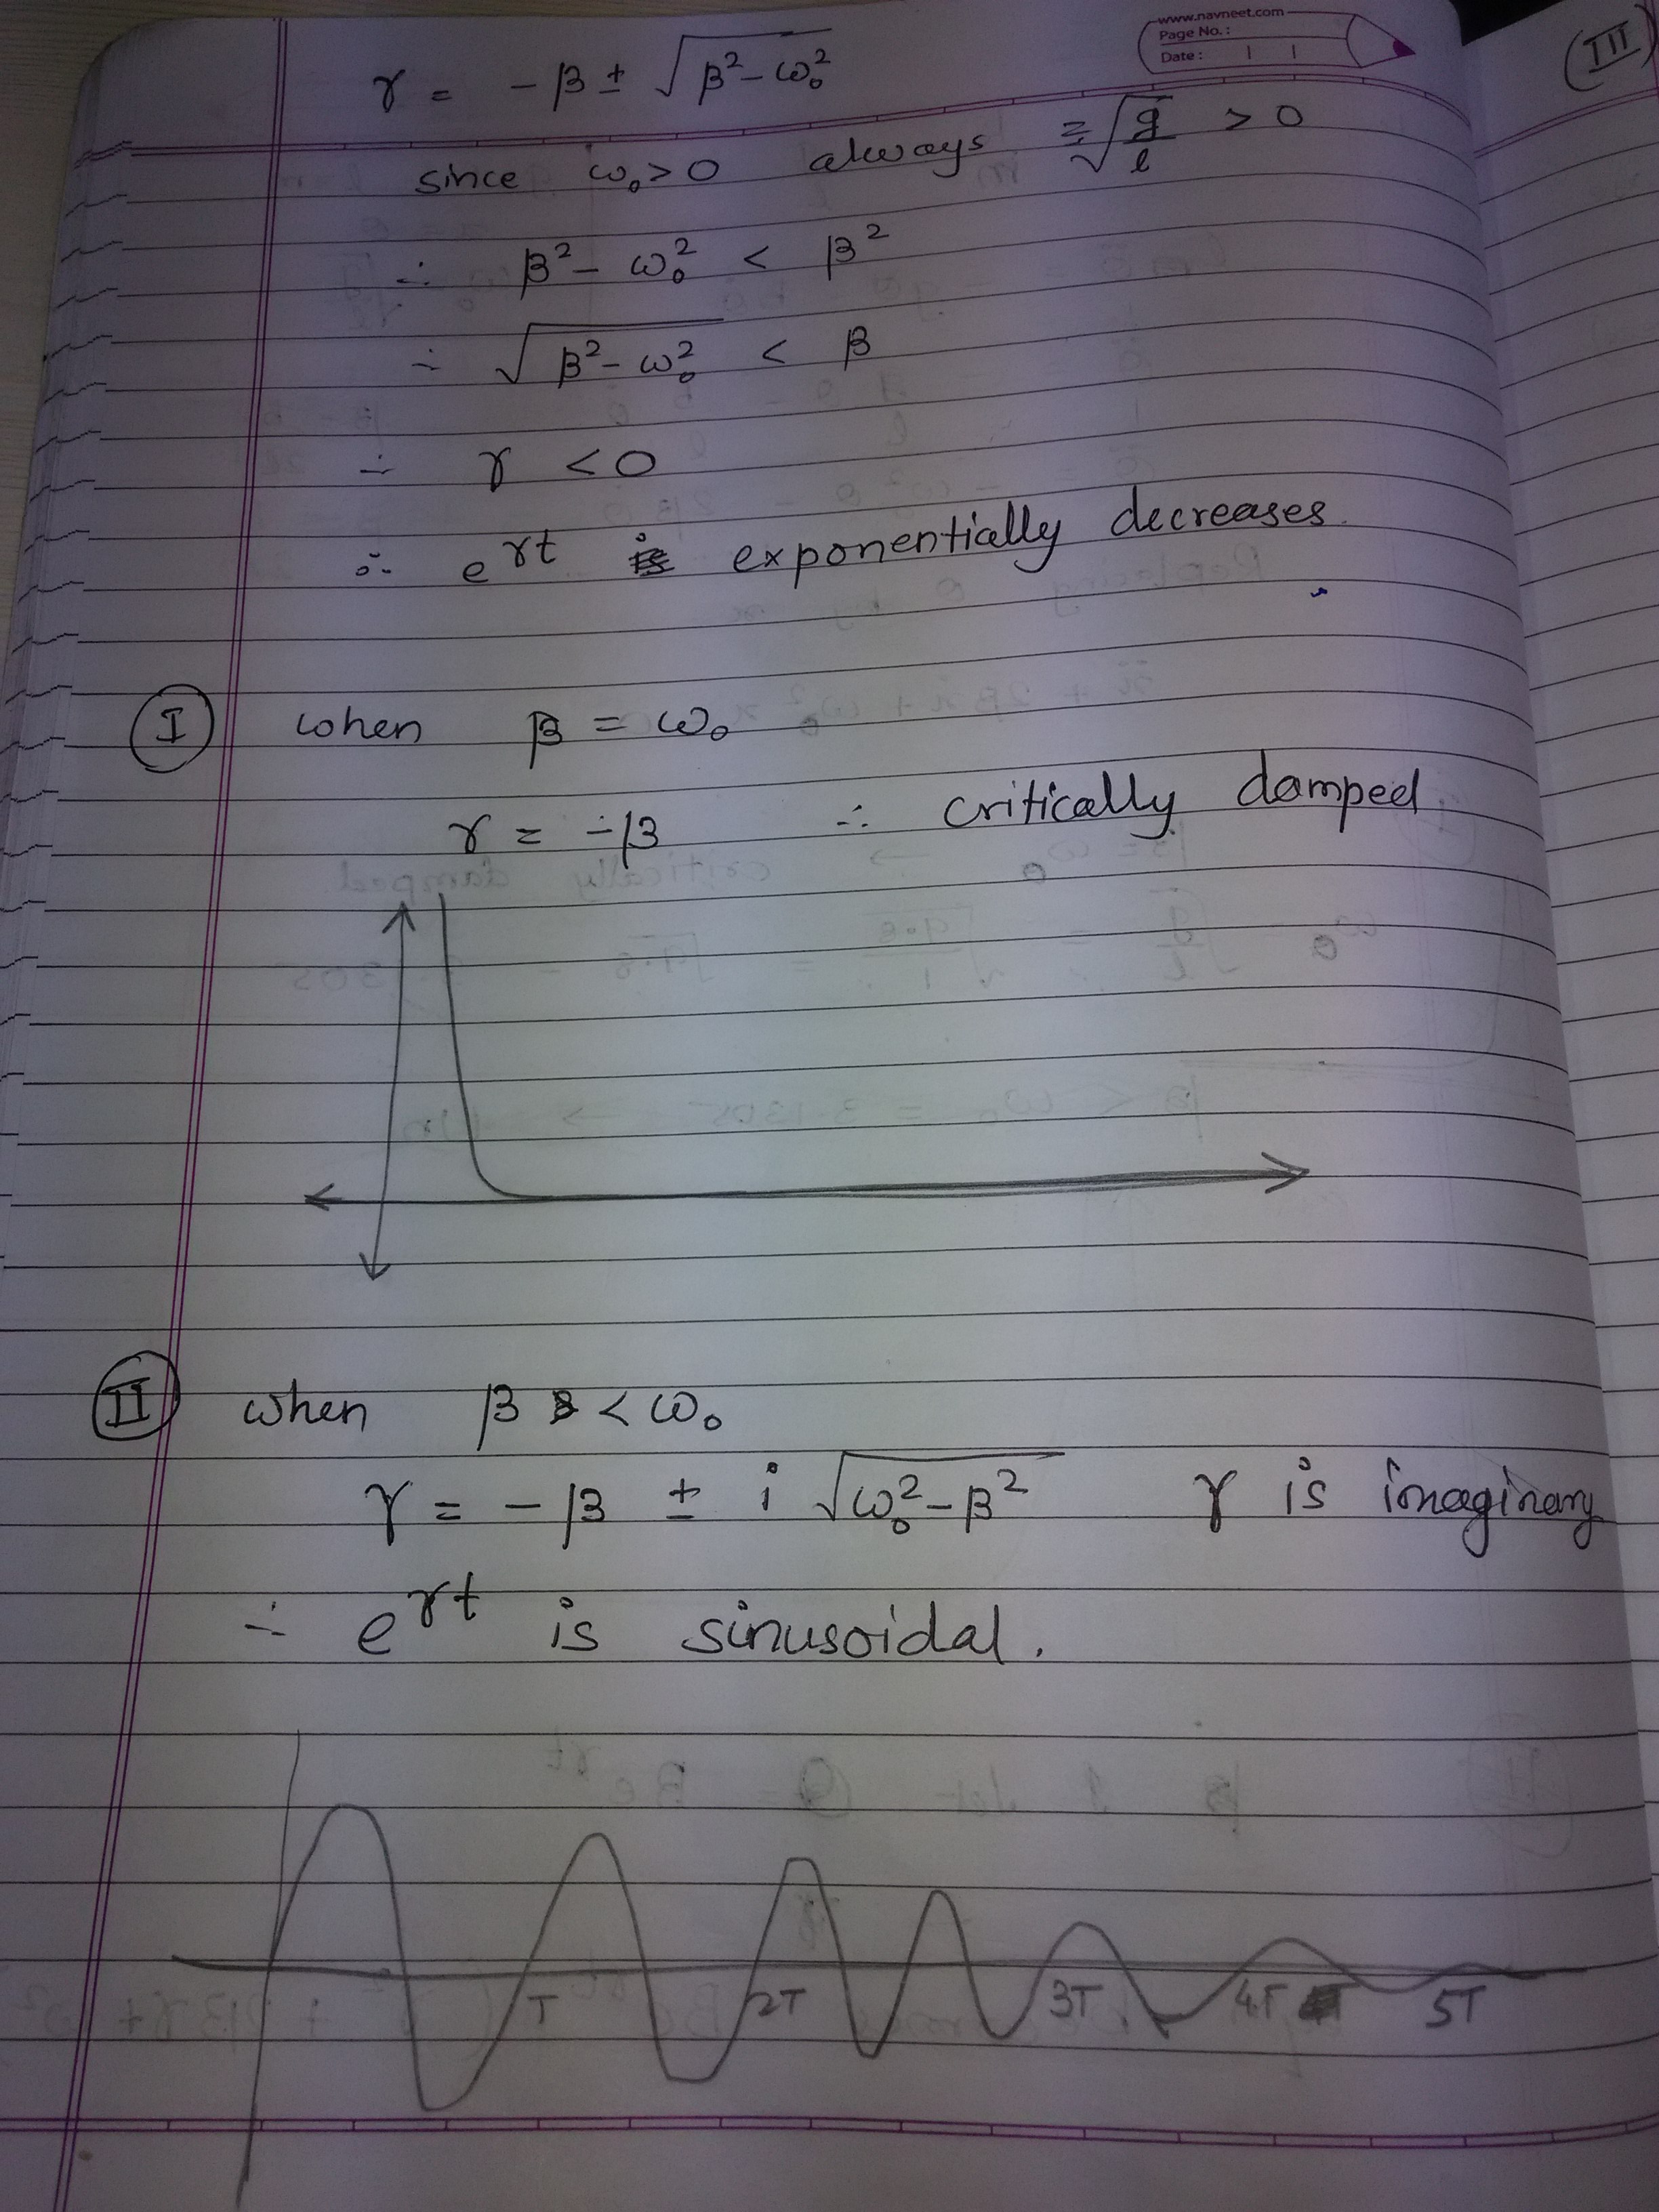 www.navneet.com
Page No.:
Date:
γ = - β ± √(β² - ω₀²)
since ω₀ > 0 always = √(g/l) > 0
∴ β² - ω₀² < β²
∴ √(β² - ω₀²) < β
∴ γ < 0
∴ e^γt exponentially decreases.
(I) when β = ω₀
γ = -β ∴ critically damped
(II) when β < ω₀
γ = - β ± i √(ω₀² - β²) γ is imaginary
∴ e^γt is sinusoidal.
T 2T 3T 4T 5T
(III)